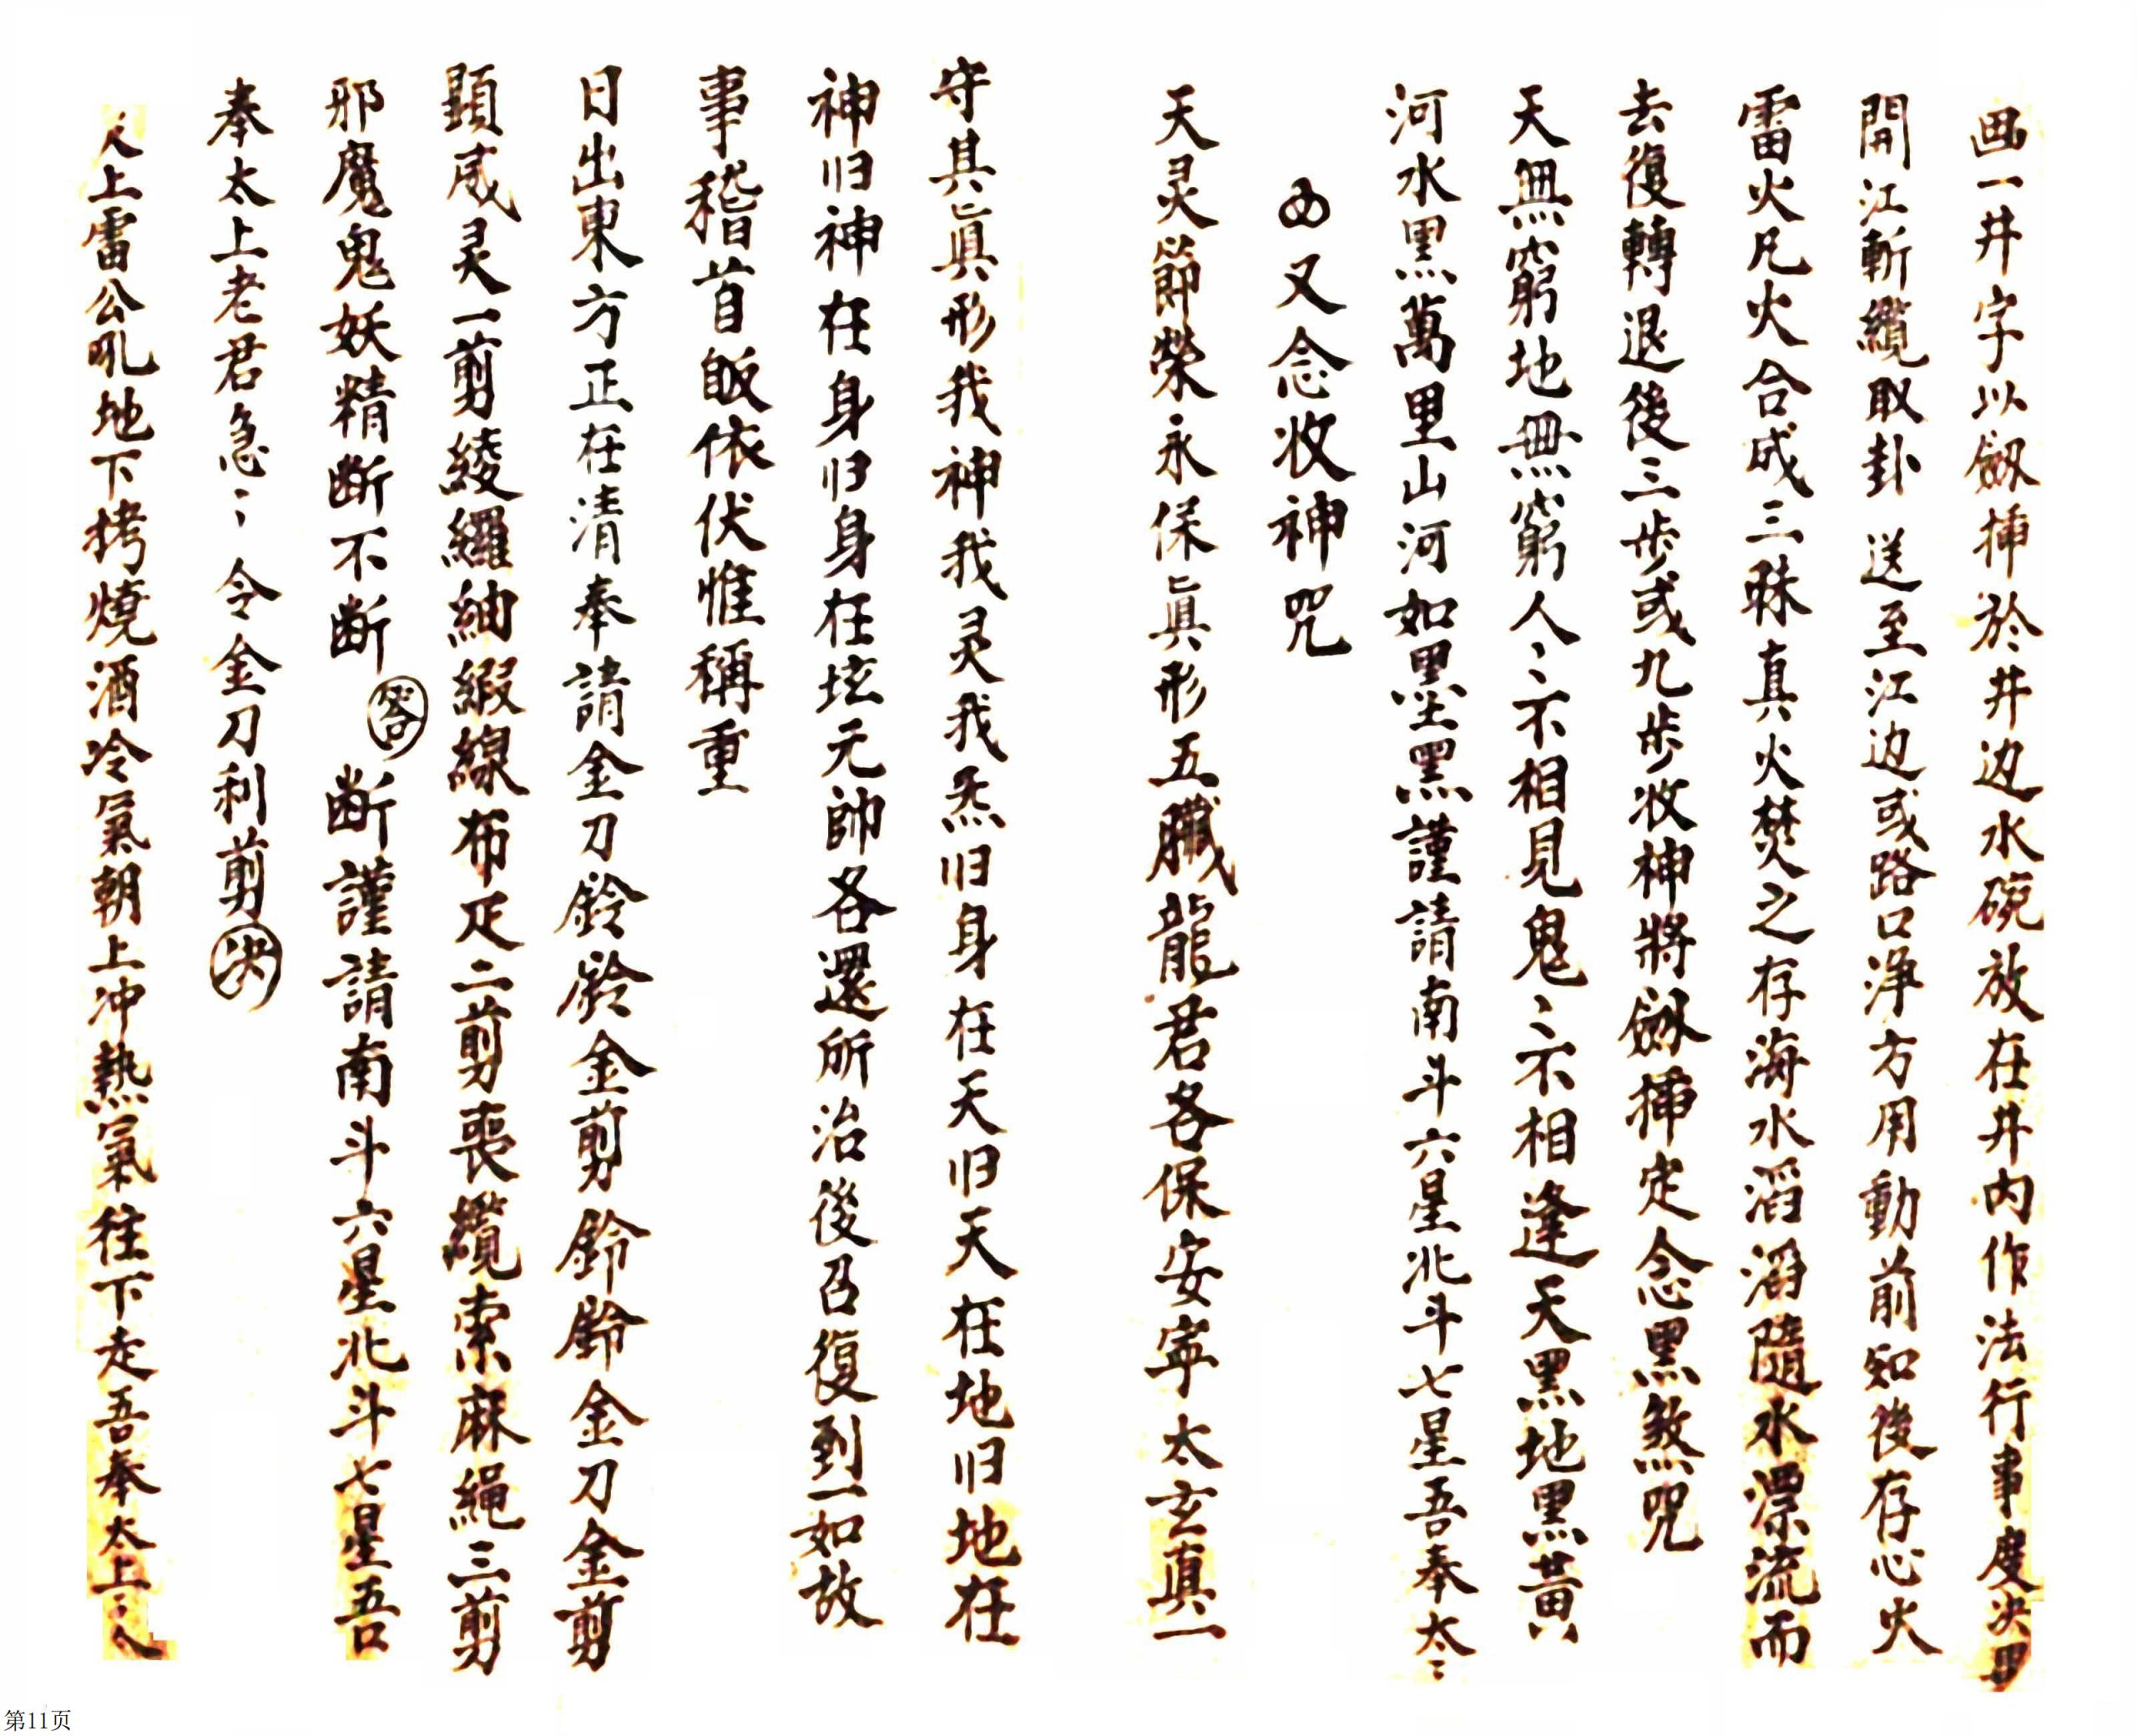 画一井字以劔揷於井边水碗放在井内作法行事度决畢
開江斬纜取卦送至江边或路口浄方用動前知後存心火
雷火凡火合成三昧真火焚之存海水滔滔隨水漂流而
去復轉退後三步或九步收神將劔揷定念黑煞咒
天無窮地無窮人〻不相見鬼〻不相逢天黑地黑黃
河水黑萬里山河如墨黑謹請南斗六星北斗七星吾奉太〻
又念收神咒
天灵節榮永保眞形五臟龍君各保安寧太玄真一
守其眞形我神我灵我炁旧身在天旧天在地旧地在
神旧神在身旧身在坛元帥各還所治後召復到一如故
事稽首皈依伏惟稱重
日出東方正在清奉請金刀鈴鈴金剪鈴鈴金刀金剪
顕威灵一剪綾纙紬緞線布疋二剪喪纜索麻繩三剪
邪魔鬼妖精断不断 答 断謹請南斗六星北斗七星吾
奉太上老君急〻令金刀利剪 决
天上雷公吼地下拷燒酒冷氣朝上冲熱氣往下走吾奉太上〻
第11页